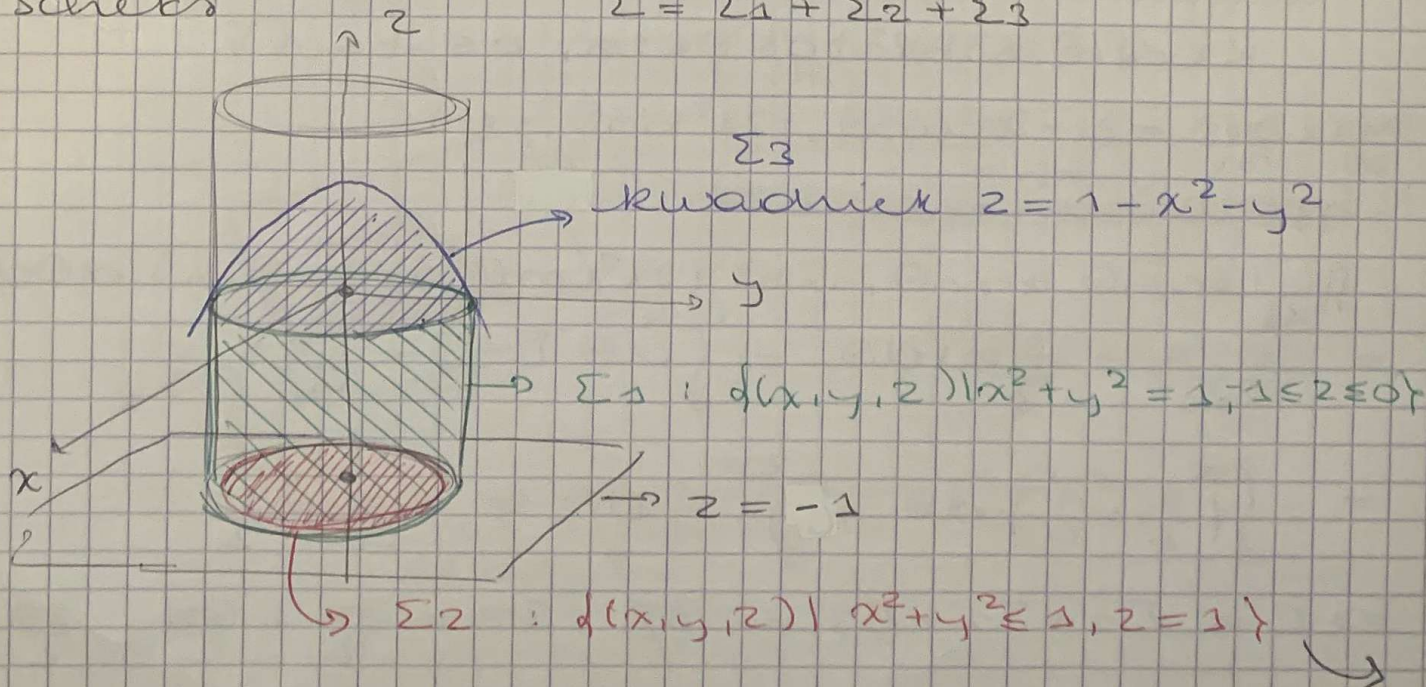 schets
Σ = Σ1 + Σ2 + Σ3
z
Σ3
kwadriek z = 1 - x² - y²
y
Σ1 : {(x, y, z) | x² + y² = 1, -1 ≤ z ≤ 0}
x
z = -1
Σ2 : {(x, y, z) | x² + y² ≤ 1, z = 1}